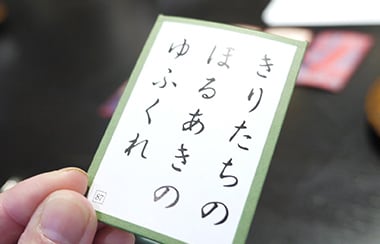 きりたちの
ほるあきの
ゆふくれ
87